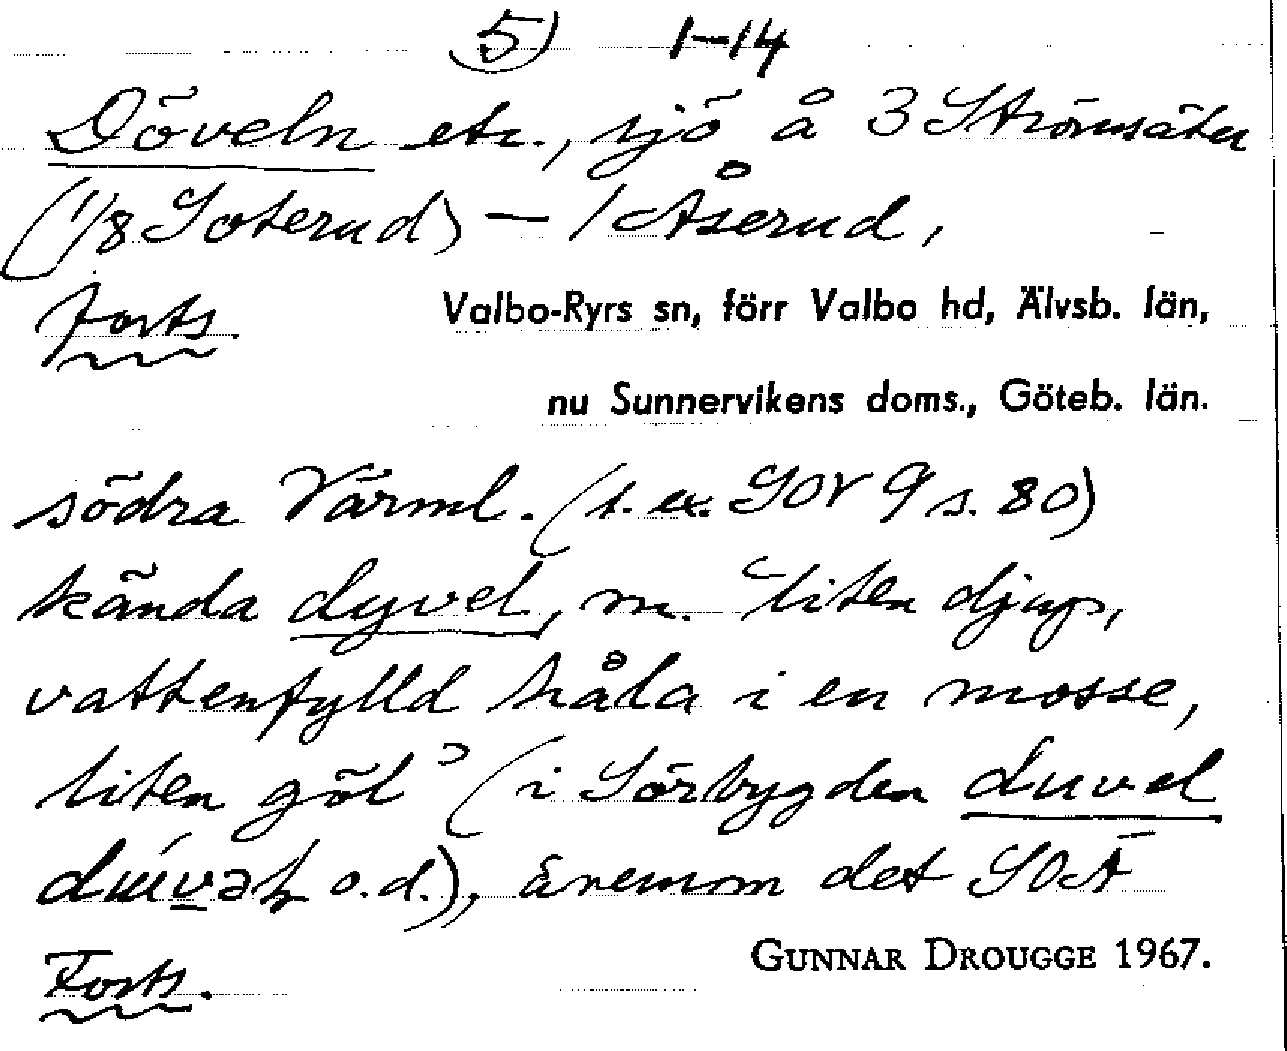 5) 1-14
Döveln etc., sjö å 3 Strömsäter
(1/8 Soterud) – 1 Åserud,
Forts. Valbo-Ryrs sn, förr Valbo hd, Älvsb. län,
nu Sunnervikens doms., Göteb. län.
södra Värml. (t. ex. SOV 9 s. 80)
kända dyvel, m. "liten djup,
vattenfylld håla i en mosse,
liten göl" (i Sörbygden duvel
o.d.), ävensom det SOÄ
Forts. GUNNAR DROUGGE 1967.